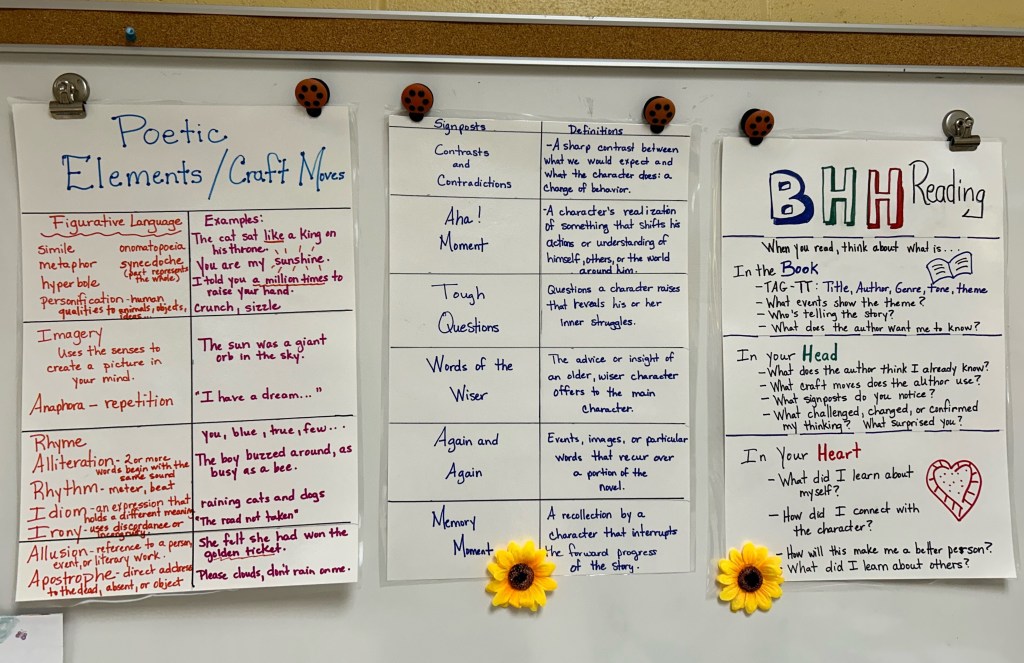 Poetic
Elements/Craft Moves
Figurative Language
simile onomatopoeia
metaphor synecdoche
hyperbole (part represents
the whole)
personification-human
qualities to animals, objects,
ideas...
Examples:
The cat sat like a king on
his throne.
You are my sunshine.
I told you a million times to
raise your hand.
Crunch, sizzle
Imagery
Uses the senses to
create a picture in
your mind.
Anaphora - repetition
The sun was a giant
orb in the sky.
"I have a dream..."
Rhyme
Alliteration- 2 or more
words begin with the
same sound
Rhythm- meter, beat
Idiom-an expression that
holds a different meaning
Irony-uses discordance or
incongruity
you, blue, true, few...
The boy buzzed around, as
busy as a bee.
raining cats and dogs
"The road not taken"
Allusion- reference to a person,
event, or literary work.
Apostrophe- direct address
to the dead, absent, or object
She felt she had won the
golden ticket.
Please clouds, don't rain on me.
Signposts Definitions
Contrasts
and
Contradictions
-A sharp contrast between
what we would expect and
what the character does: a
change of behavior.
Aha!
Moment
-A character's realization
of something that shifts his
actions or understanding of
himself, others, or the world
around him.
Tough
Questions
Questions a character raises
that reveals his or her
inner struggles.
Words of the
Wiser
The advice or insight of
an older, wiser character
offers to the main
character.
Again and
Again
Events, images, or particular
words that recur over
a portion of the
novel.
Memory
Moment
A recollection by a
character that interrupts
the forward progress
of the story.
BHH Reading
When you read, think about what is...
In the Book
- TAG-TT: Title, Author, Genre, Tone, theme
- What events show the theme?
- Who's telling the story?
- What does the author want me to know?
In your Head
- What does the author think I already know?
- What craft moves does the author use?
- What signposts do you notice?
- What challenged, changed, or confirmed
my thinking? What surprised you?
In Your Heart
- What did I learn about
myself?
- How did I connect with
the character?
- How will this make me a better person?
- What did I learn about others?